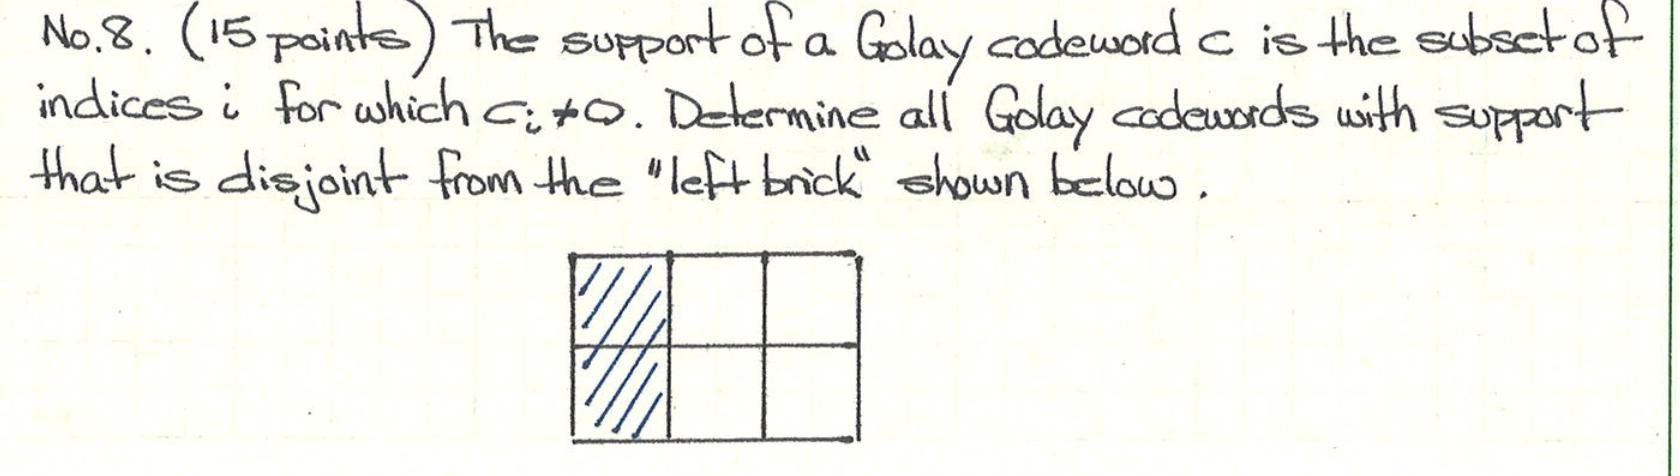 No.8. (15 points) The support of a Golay codeword c is the subset of
indices i for which cᵢ ≠ 0. Determine all Golay codewords with support
that is disjoint from the "left brick" shown below.